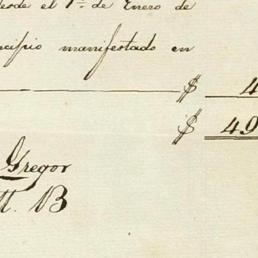 desde el 1º. de Enero de
ncipio manifestado en
$ 4
$ 49
Gregor
tt. B